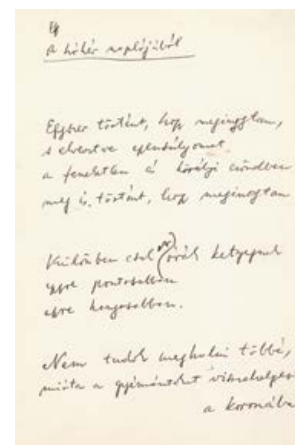 A hóhér naplójából
Egyszer történt, hogy megingtam,
s elvesztve egyensúlyomat
a feneketlen és királyi csöndben
meg is történt, hogy megingtam
Különben csak az órák ketyegnek
egyre pontosabban
egyre hangosabban.
Nem tudok meghalni többé,
mióta a gyémántokat
a koronába